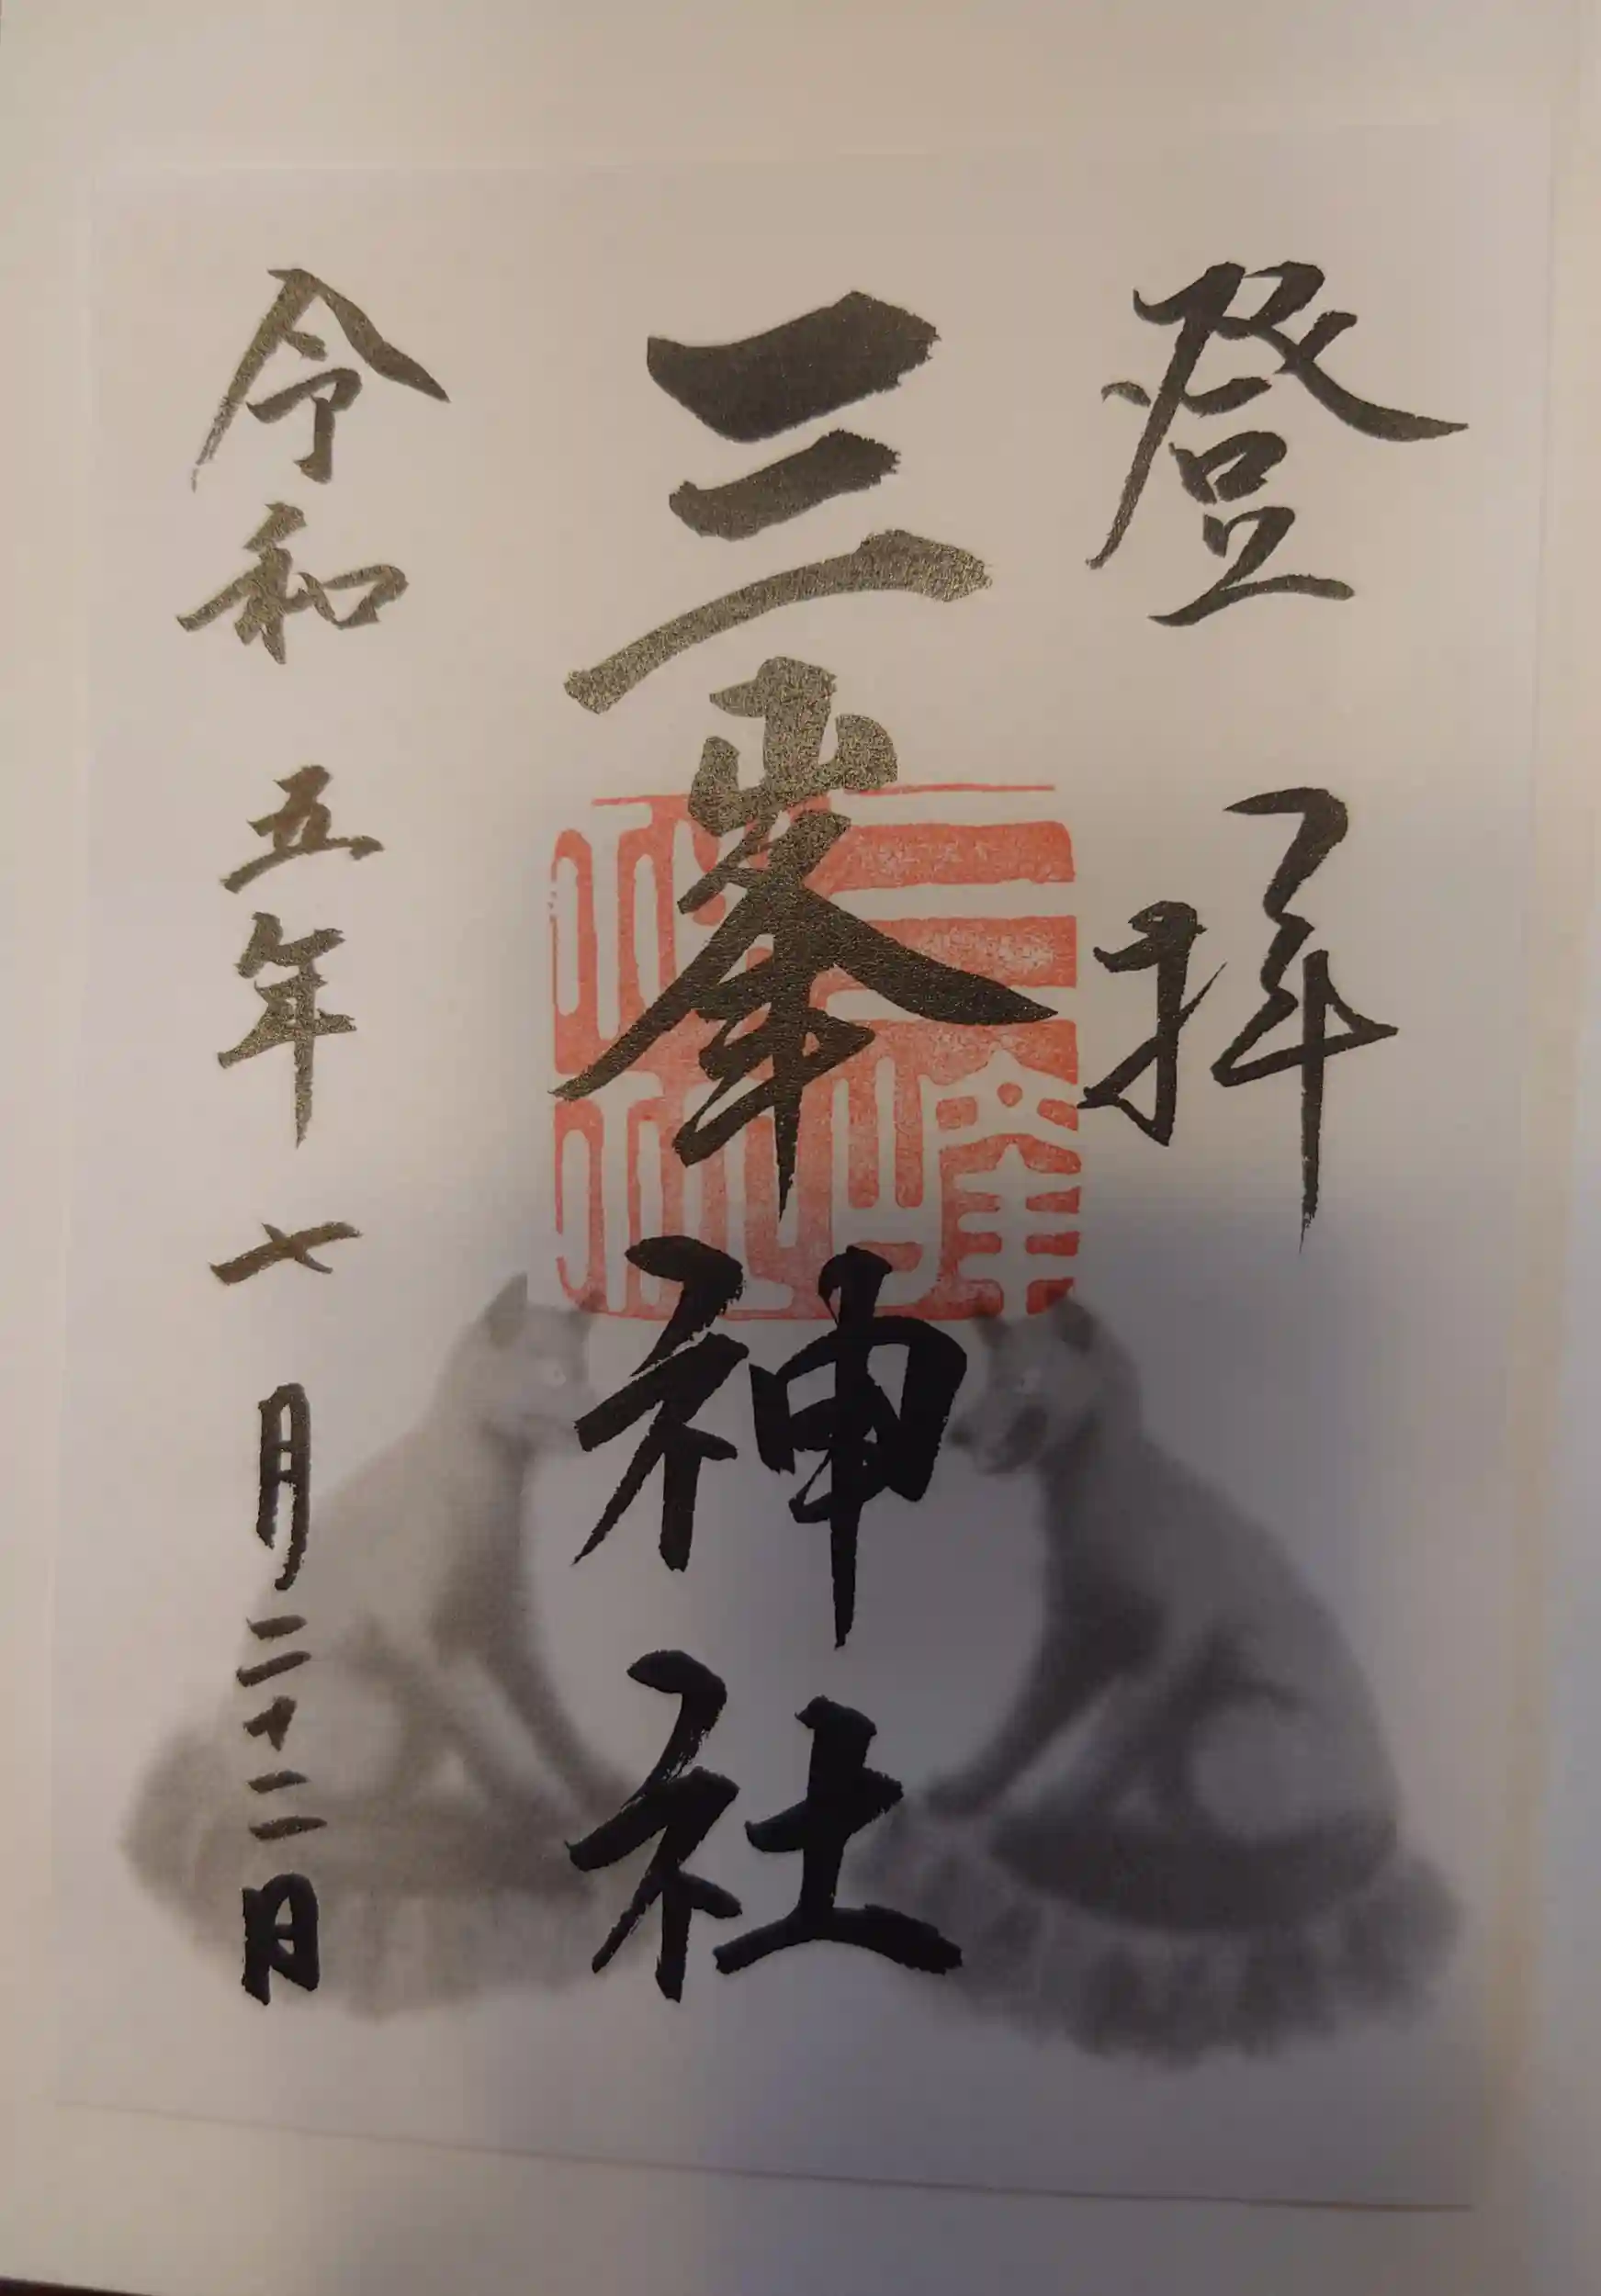 登拝
三峯神社
令和五年七月二十二日
三峰神社